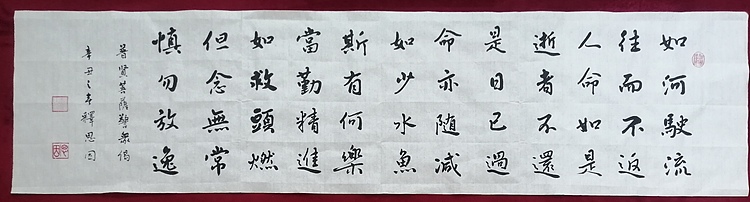 如河駛流
往而不返
人命如是
逝者不還
是日已過
命亦随減
如少水魚
斯有何樂
當勤精進
如救頭燃
但念無常
慎勿放逸
普賢菩薩警衆偈
辛丑之年釋思同